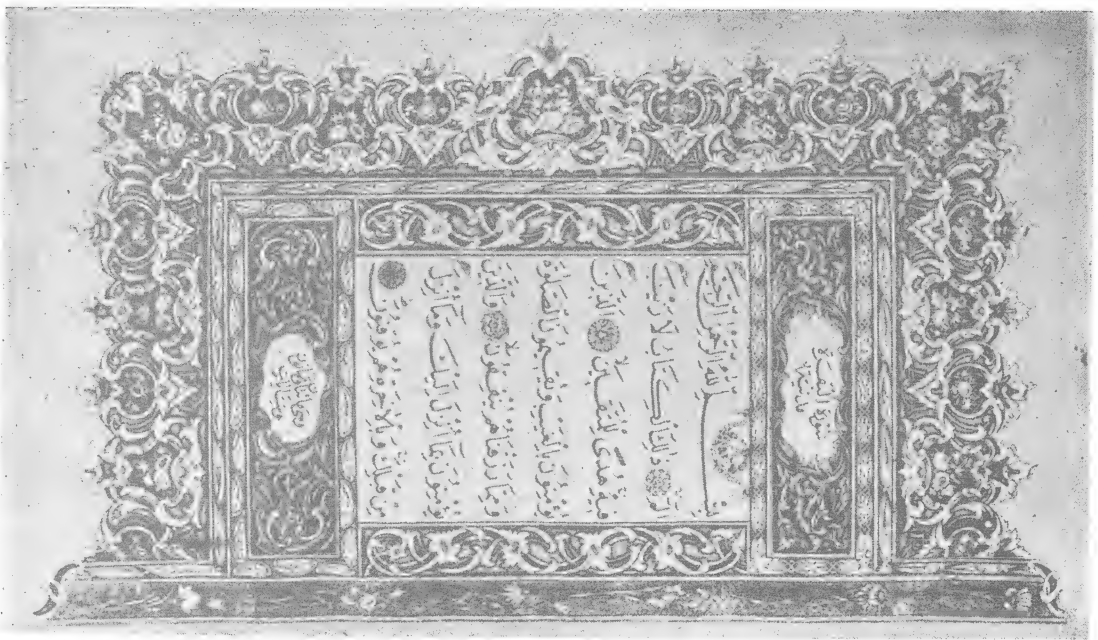 سُورَةُ الْبَقَرَةِ
بِسْمِ اللّٰهِ الرَّحْمٰنِ الرَّحِيمِ
الٓمٓ ذٰلِكَ الْكِتَابُ لَا رَيْبَ
فِيهِ هُدًى لِلْمُتَّقِينَ الَّذِينَ
يُؤْمِنُونَ بِالْغَيْبِ وَيُقِيمُونَ الصَّلٰوةَ
وَمِمَّا رَزَقْنَاهُمْ يُنْفِقُونَ وَالَّذِينَ
يُؤْمِنُونَ بِمَا أُنْزِلَ إِلَيْكَ وَمَا أُنْزِلَ
مِنْ قَبْلِكَ وَبِالْاٰخِرَةِ هُمْ يُوقِنُونَ